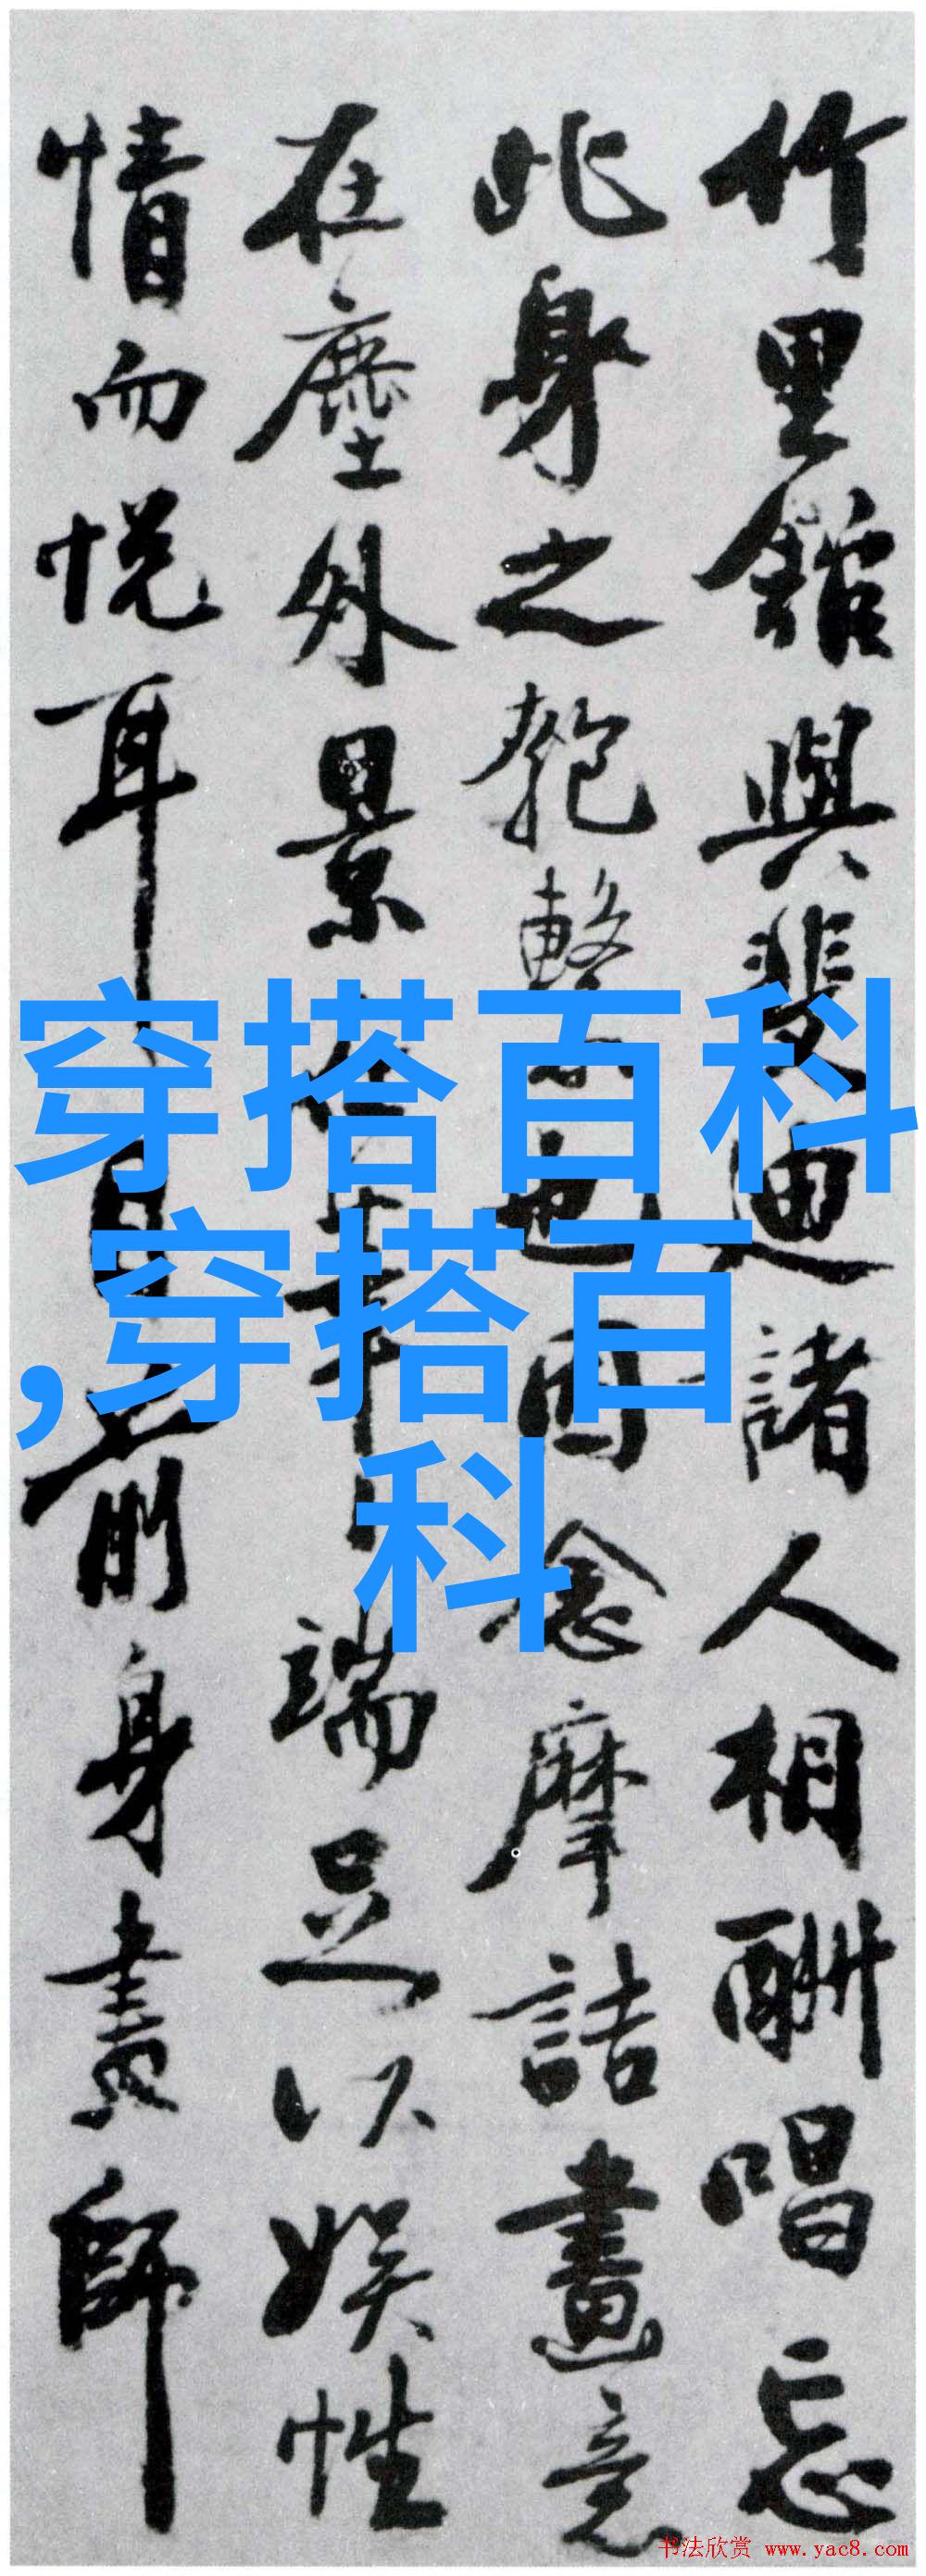 竹里館與斐迪諸人相酬唱忘
此身之匏繫也因念摩詰畫意
在塵外景在筆端足以娛性
情而悅耳目前身畫師
穿搭百科
,穿搭百
科
书法欣赏 www.yac8.com